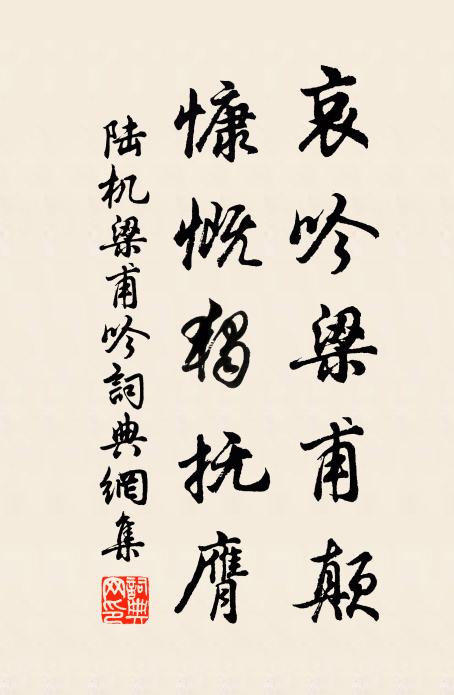 哀吟梁甫颠
慷慨独抚膺
陆机梁甫吟詞典網集
詞典网印